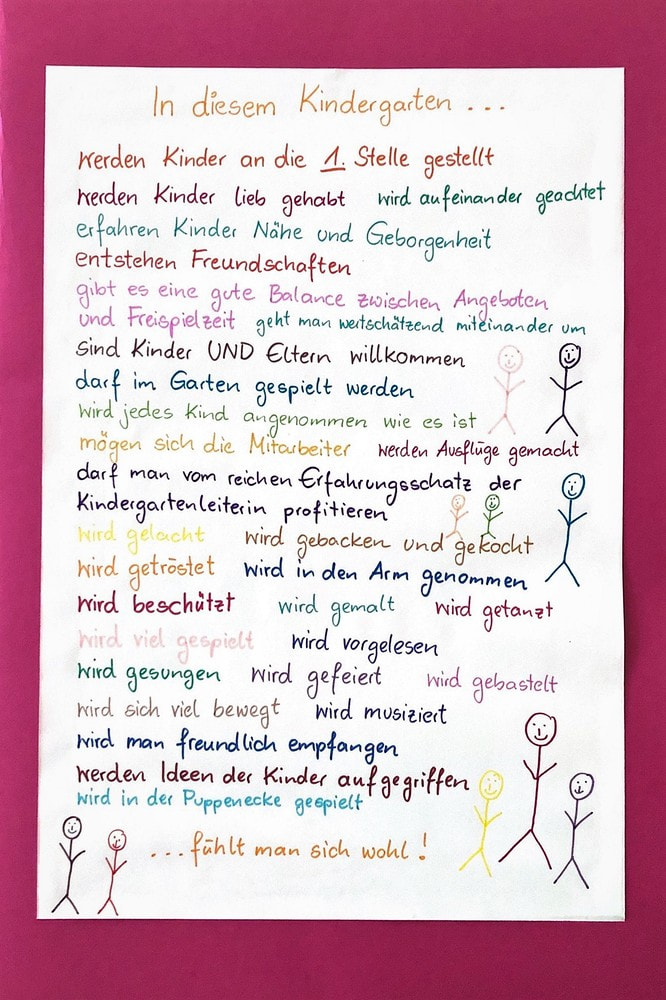 In diesem Kindergarten ...
werden Kinder an die 1. Stelle gestellt
werden Kinder lieb gehabt wird aufeinander geachtet
erfahren Kinder Nähe und Geborgenheit
entstehen Freundschaften
gibt es eine gute Balance zwischen Angeboten
und Freispielzeit geht man wertschätzend miteinander um
sind Kinder UND Eltern willkommen
darf im Garten gespielt werden
wird jedes Kind angenommen wie es ist
mögen sich die Mitarbeiter werden Ausflüge gemacht
darf man vom reichen Erfahrungsschatz der
Kindergartenleiterin profitieren
wird gelacht wird gebacken und gekocht
wird getröstet wird in den Arm genommen
wird beschützt wird gemalt wird getanzt
wird viel gespielt wird vorgelesen
wird gesungen wird gefeiert wird gebastelt
wird sich viel bewegt wird musiziert
wird man freundlich empfangen
werden Ideen der Kinder aufgegriffen
wird in der Puppenecke gespielt
...fühlt man sich wohl!